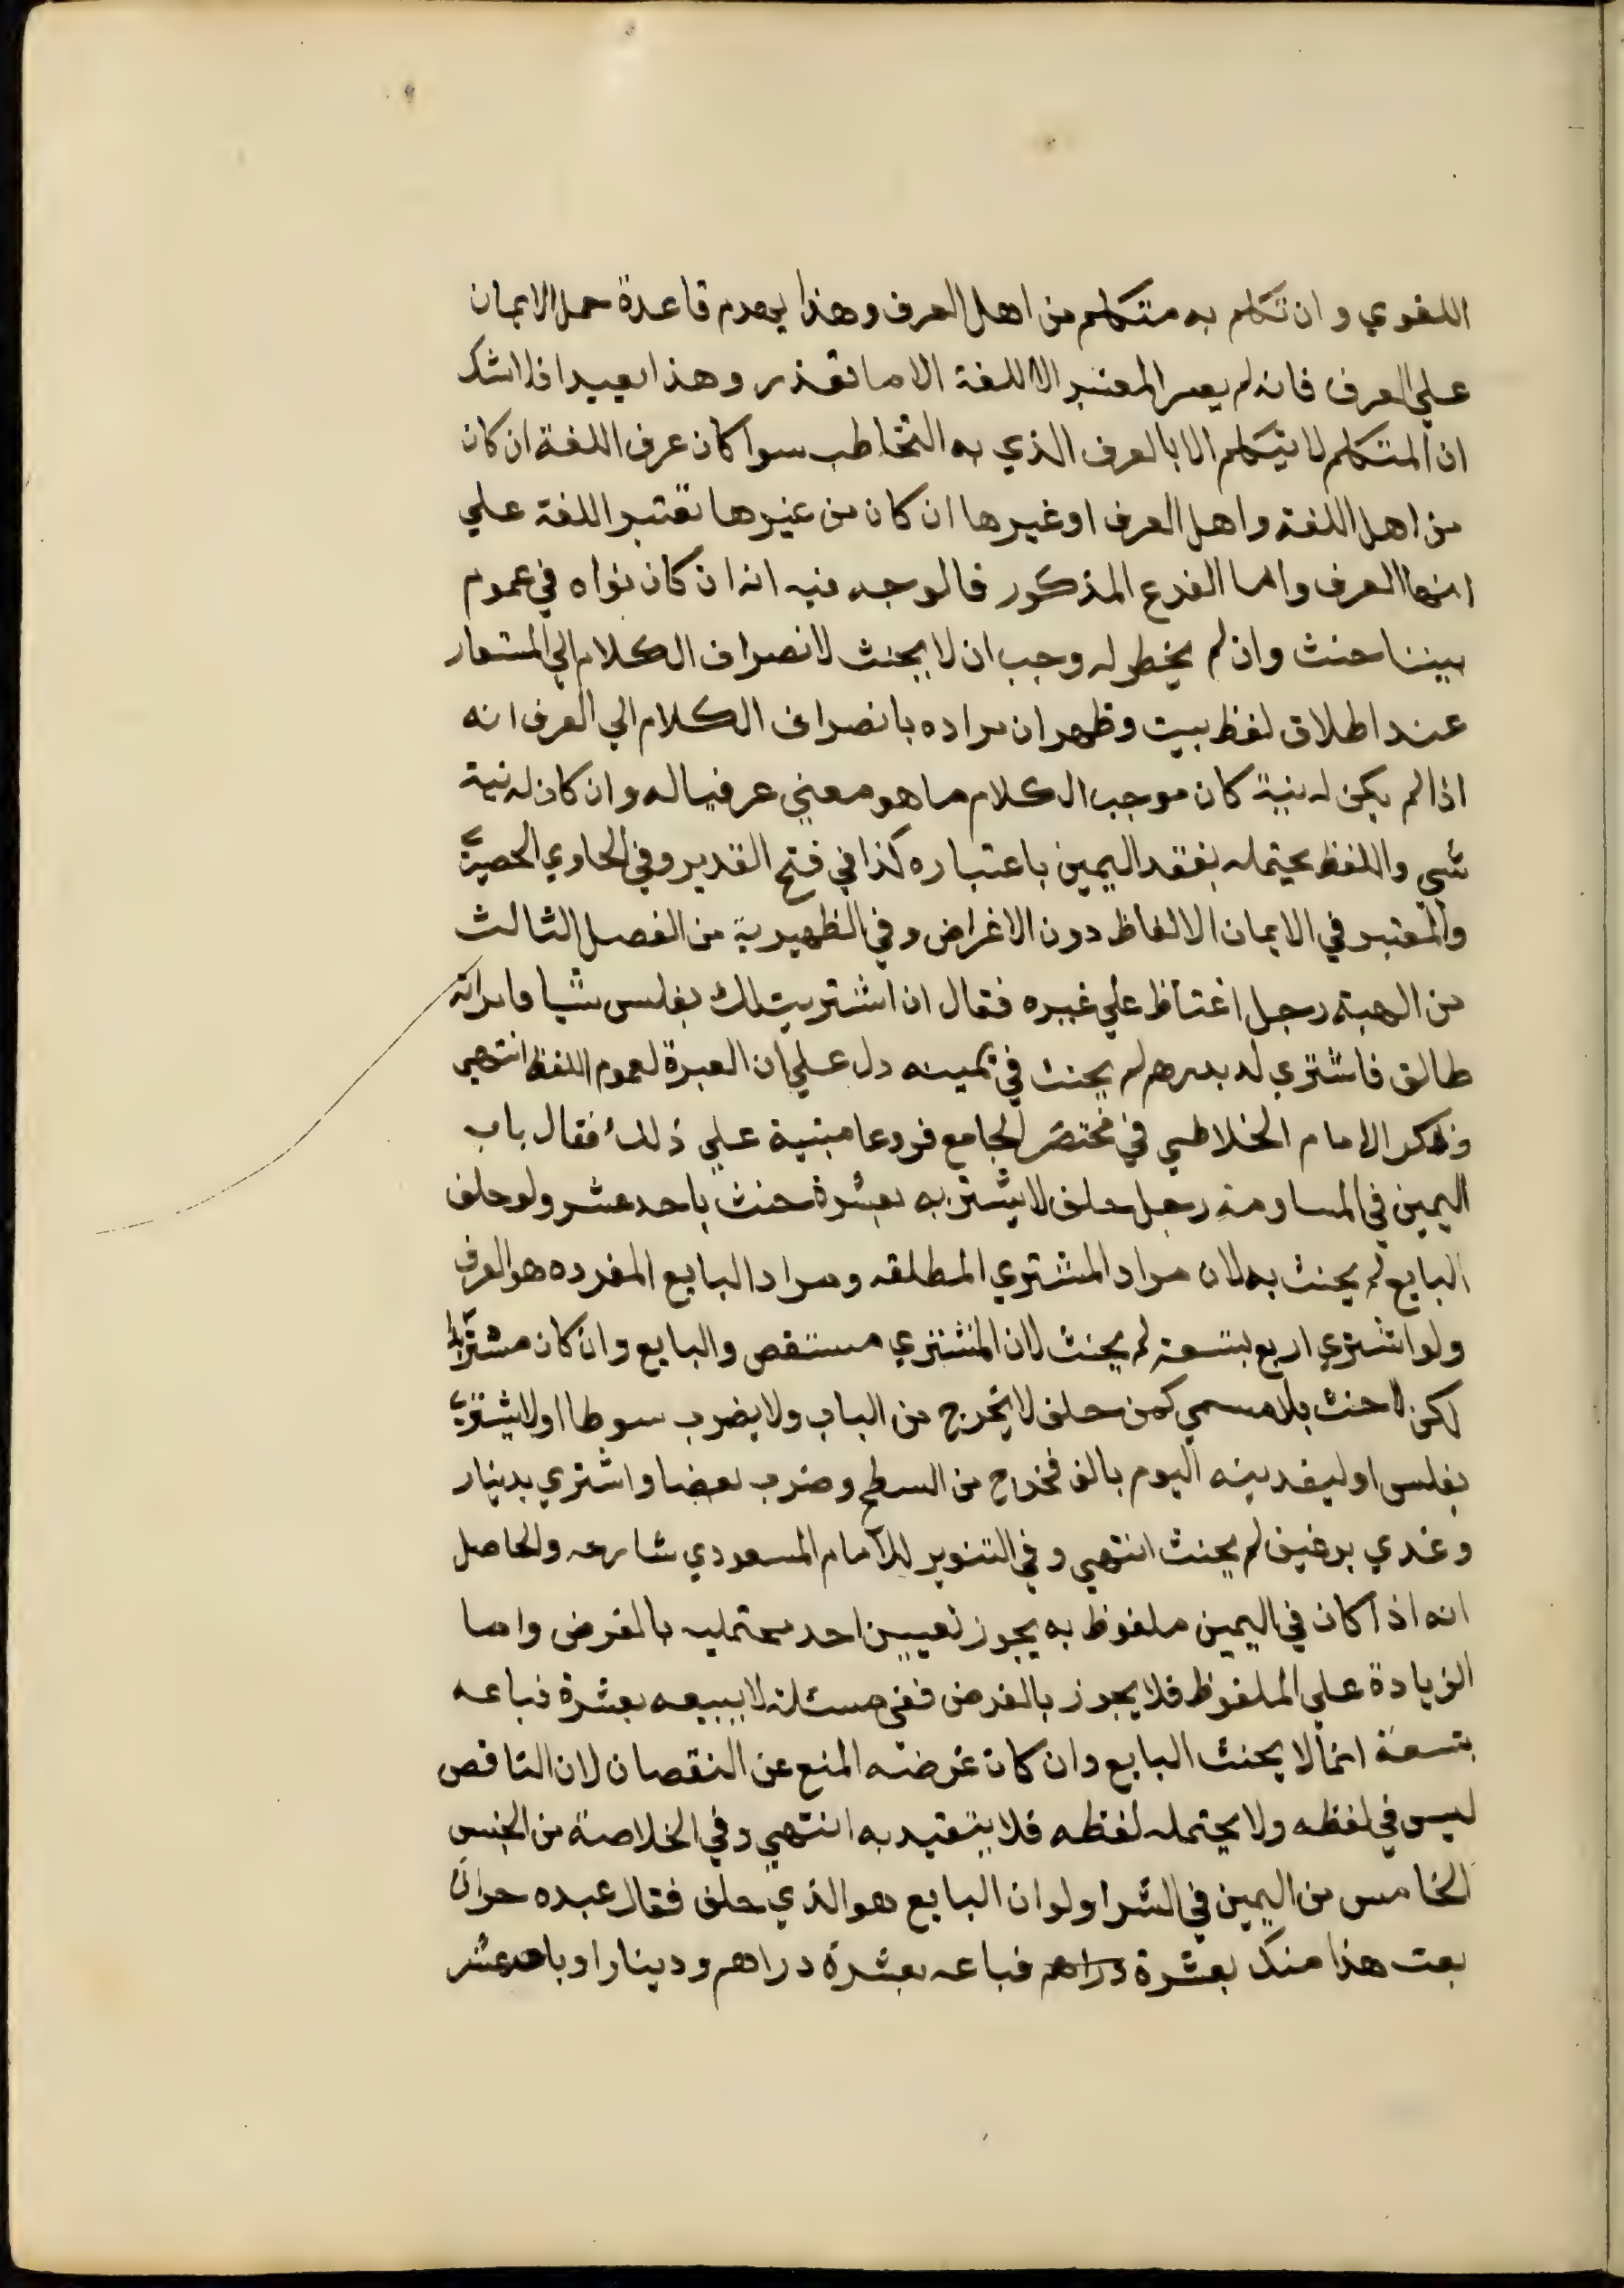 اللغوي وان تكلم به متكلم من اهل العرف وهذا يهدم قاعدة حمل الايمان
علي العرف فانه لم يصر المعتبر الا اللغة الا ما تعذر وهذا بعيد اذلا شك
ان المتكلم لا يتكلم الا بالعرف الذي به التخاطب سوا كان عرف اللغة ان كان
من اهل اللغة واهل العرف او غيرها ان كان من غيرها تعتبر اللغة علي
انها العرف واما الفرع المذكور فالوجه فيه انه ان كان نواه في عموم
بيتنا حنث وان لم يخطر له وجب ان لا يحنث لانصراف الكلام الي المتعار
عند اطلاق لفظ بيت وظهر ان مراده بانصراف الكلام الي العرف انه
اذا لم يكن له نية كان موجب الكلام ما هو معني عرفيا له وان كان له نية
شي واللفظ يحتمله نعقد اليمين باعتباره كذا في فتح القدير وفي الحاوي الحصيري
والمعتبر في الايمان الالفاظ دون الاغراض وفي الظهيرية من الفصل الثالث
من الهبة رجل اغتاظ علي غيره فقال ان اشتريت لك بفلس شيا فامراته
طالق فاشتري له بدرهم لم يحنث في يمينه دل علي ان العبرة لعموم اللفظ انتهي
وذكر الامام الخلاطي في مختصر الجامع فروعا مبنية علي ذلك فقال باب
اليمين في المساومة رجل حلف لا يشتريه بعشرة حنث باحد عشر ولو حلف
البايع لم يحنث به لان مراد المشتري المطلقه ومراد البايع المفرده هو العرف
ولو اشتري اربع بتسعة لم يحنث لان المشتري مستنقص والبايع وان كان مشتريا
لكن لا حنث بلا مسمي كمن حلف لا يخرج من الباب ولا يضرب سوطا او لا يشتري
بفلس او ليغدينه اليوم بالف فخرج من السطح وضرب بعضا واشتري بدينار
وغدي برغيف لم يحنث انتهي وفي التنوير للامام المسعودي شارحه والحاصل
انه اذا كان في اليمين ملفوظ به يجوز تعيين احد محتمليه بالغرض واما
الزيادة علي الملفوظ فلا يجوز بالغرض ففي مسئلة لا يبيعه بعشرة فباعه
بتسعة انما لا يحنث البايع وان كان غرضه المنع عن النقصان لان الناقص
ليس في لفظه ولا يحتمله لفظه فلا يتقيد به انتهي وفي الخلاصة من الجنس
الخامس من اليمين في الشرا ولو ان البايع هو الذي حلف فقال عبده حر ان
بعت هذا منك بعشرة دراهم فباعه بعشرة دراهم ودينار او باحد عشر